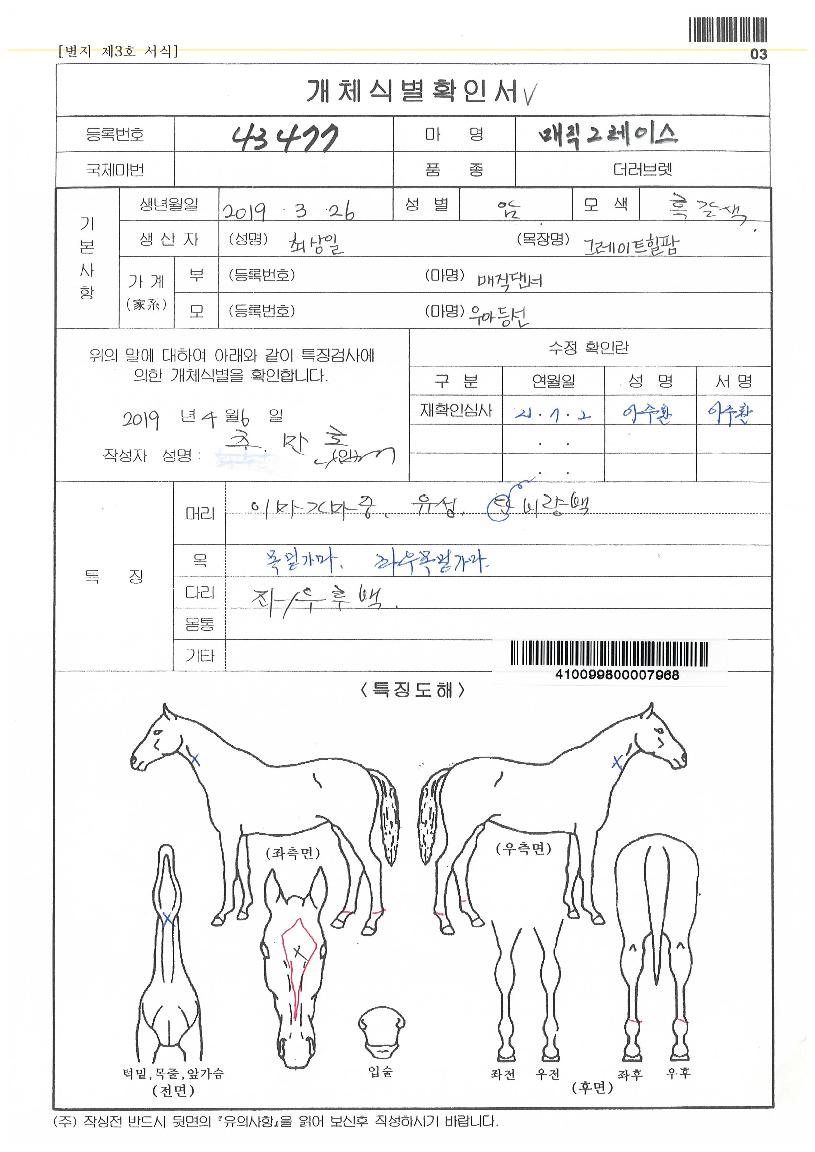 [별지 제3호 서식]
03
개체식별확인서 V
등록번호 43477 마 명 매직그레이스
국제마번 품 종 더러브렛
기본사항
생년월일 2019 . 3 . 26 성 별 암 모 색 흑갈색.
생 산 자 (성명) 최상일 (목장명) 그레이트힐팜
가 계 (家系) 부 (등록번호) (마명) 매직댄서
모 (등록번호) (마명) 우아등선
위의 말에 대하여 아래와 같이 특징검사에
의한 개체식별을 확인합니다.
2019 년 4 월 6 일
작성자 성명 : 추 만 호 (인)
수정 확인란
구 분 연월일 성 명 서 명
재확인심사 21 . 7 . 2 이수환 이수환
. .
. .
특 징
머리 이마가마중. 유성. 비량백
목 목밑가마. 좌우목밑가마.
다리 좌/우후백.
몸통
기타
410099800007968
<특징도해>
(좌측면)
(우측면)
턱밑,목줄,앞가슴
(전면)
입술
좌전 우전 좌후 우후
(후면)
(주) 작성전 반드시 뒷면의 『유의사항』을 읽어 보신후 작성하시기 바랍니다.